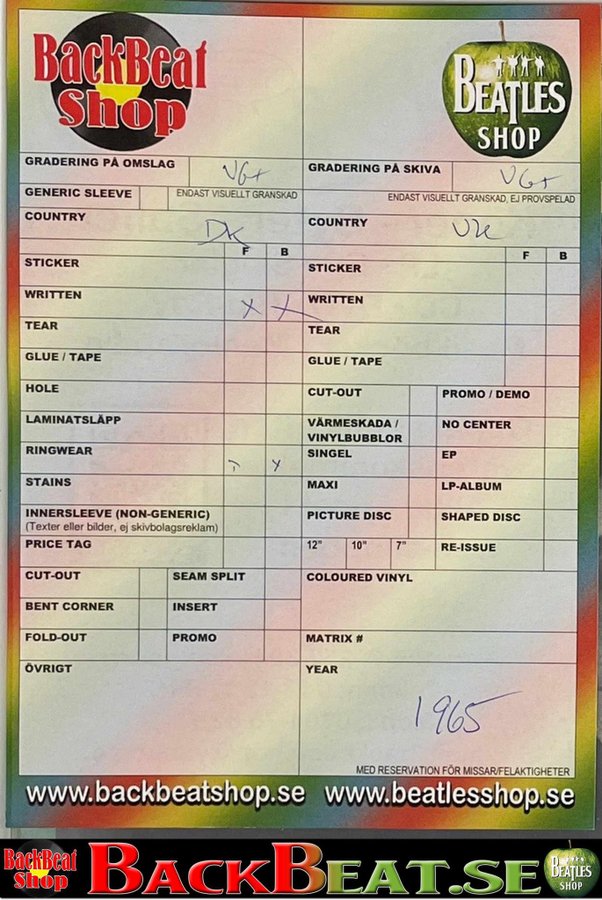 BackBeat
Shop
BEATLES
SHOP
GRADERING PÅ OMSLAG VG+
GENERIC SLEEVE ENDAST VISUELLT GRANSKAD
COUNTRY DK
F B
STICKER
WRITTEN X X
TEAR
GLUE / TAPE
HOLE
LAMINATSLÄPP
RINGWEAR X
STAINS
INNERSLEEVE (NON-GENERIC)
(Texter eller bilder, ej skivbolagsreklam)
PRICE TAG
CUT-OUT SEAM SPLIT
BENT CORNER INSERT
FOLD-OUT PROMO
ÖVRIGT
GRADERING PÅ SKIVA VG+
ENDAST VISUELLT GRANSKAD, EJ PROVSPELAD
COUNTRY UK
F B
STICKER
WRITTEN
TEAR
GLUE / TAPE
CUT-OUT PROMO / DEMO
VÄRMESKADA / NO CENTER
VINYLBUBBLOR
SINGEL EP
MAXI LP-ALBUM
PICTURE DISC SHAPED DISC
12" 10" 7" RE-ISSUE
COLOURED VINYL
MATRIX #
YEAR
1965
MED RESERVATION FÖR MISSAR/FELAKTIGHETER
www.backbeatshop.se www.beatlesshop.se
BackBeat
Shop
BACKBEAT.SE
BEATLES
SHOP